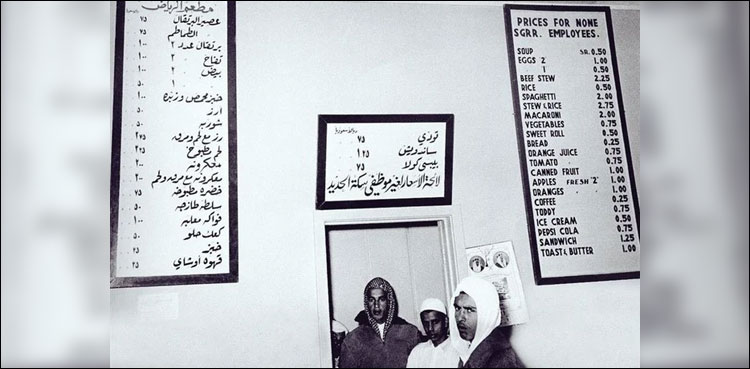 مطعم الرياض
عصير البرتقال ٧٥
الطماطم ٧٥
برتقال عدد ٢ ١٠٠
تفاح ٢ ١٠٠
بيض ٢ ١٠٠
١ ٥٠
خبز محمص وزبدة ١٠٠
ارز ٥٠
شوربه ٥٠
رز مع لحم ومرق ٢٧٥
لحم مطبوخ ٢٢٥
معكرونه ٢٠٠
معكرونه مع مرق ولحم
خضره مطبوخه ٧٥
سلطه طازجه ٥٠
فواكه معلبه ١٠٠
كعك حلو ٥٠
خبز ٢٥
قهوه أو شاي ٢٥
تودي ٧٥
ساندويتش ١٢٥
بيبسي كولا ٧٥
لائحة الاسعار لغير موظفي سكة الحديد
PRICES FOR NONE
SGRR. EMPLOYEES.
SOUP S.R. 0.50
EGGS 2 1.00
1 0.50
BEEF STEW 2.25
RICE 0.50
SPAGHETTI 2.00
STEW & RICE 2.75
MACARONI 2.00
VEGETABLES 0.75
SWEET ROLL 0.50
BREAD 0.25
ORANGE JUICE 0.75
TOMATO 0.75
CANNED FRUIT 1.00
APPLES FRESH "2" 1.00
ORANGES 1.00
COFFEE 0.25
TODDY 0.75
ICE CREAM 0.50
PEPSI COLA 0.75
SANDWICH 1.25
TOAST & BUTTER 1.00